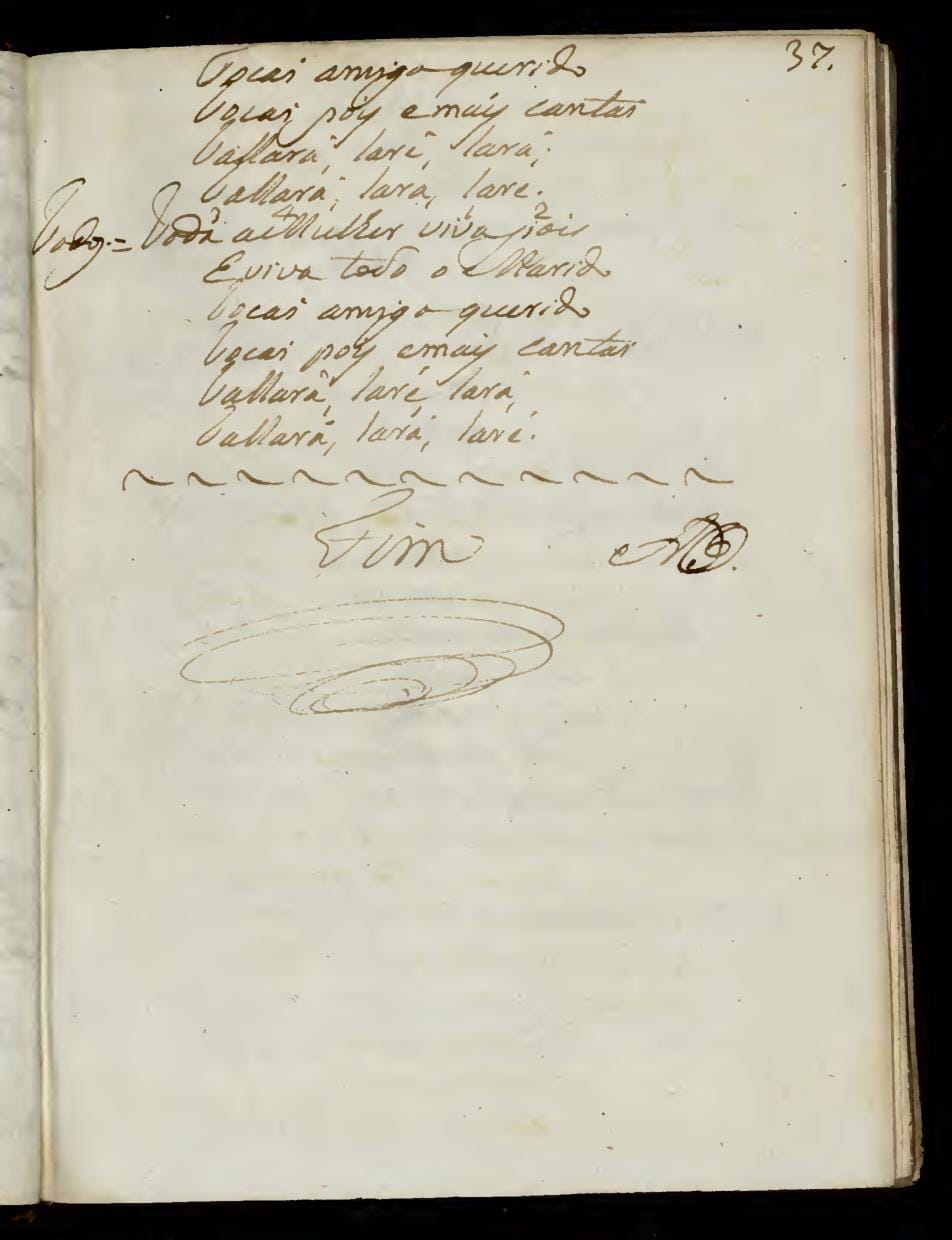 37.
Tocai amigo querido
Tocai poiy emaiy cantai
Tallará, laré, lará;
Tallará, lará, laré.
Todoz.= Toda 3 a Mulher 4 viva 1 pois 2
E viva todo o Marido
Tocai amigo querido
Tocai poiy emaiy cantai
Tallará, laré, lará,
Tallará, lará, laré.
Fim